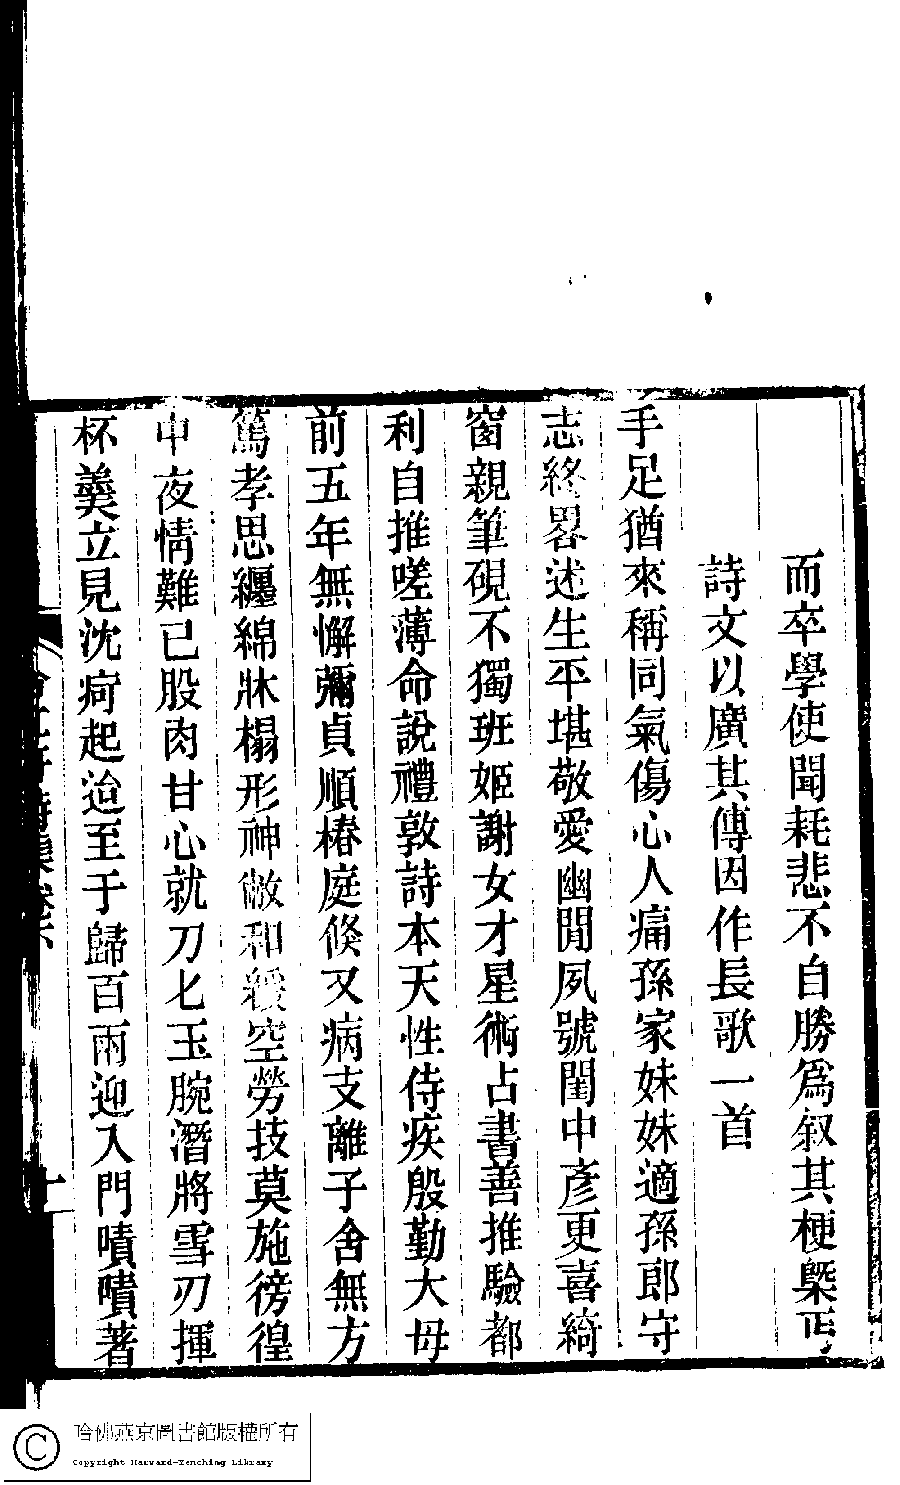 而卒學使聞耗悲不自勝爲叙其梗槩丐
詩文以廣其傳因作長歌一首
手足猶來稱同氣傷心人痛孫家妹妹適孫郎守
志終畧述生平堪敬愛幽閒夙號閨中彥更喜綺
窗親筆硯不獨班姬謝女才星術占書善推驗都
利自推嗟薄命說禮敦詩本天性侍疾殷勤大母
前五年無懈彌貞順椿庭倐又病支離子舍無方
篤孝思纏綿牀榻形神敝和緩空勞技莫施徬徨
中夜情難已股肉甘心就刀匕玉腕潛將雪刃揮
杯羹立見沈疴起迨至于歸百兩迎入門嘖嘖著
卷六
十
哈佛燕京圖書館版權所有
Copyright Harvard-Yenching Library